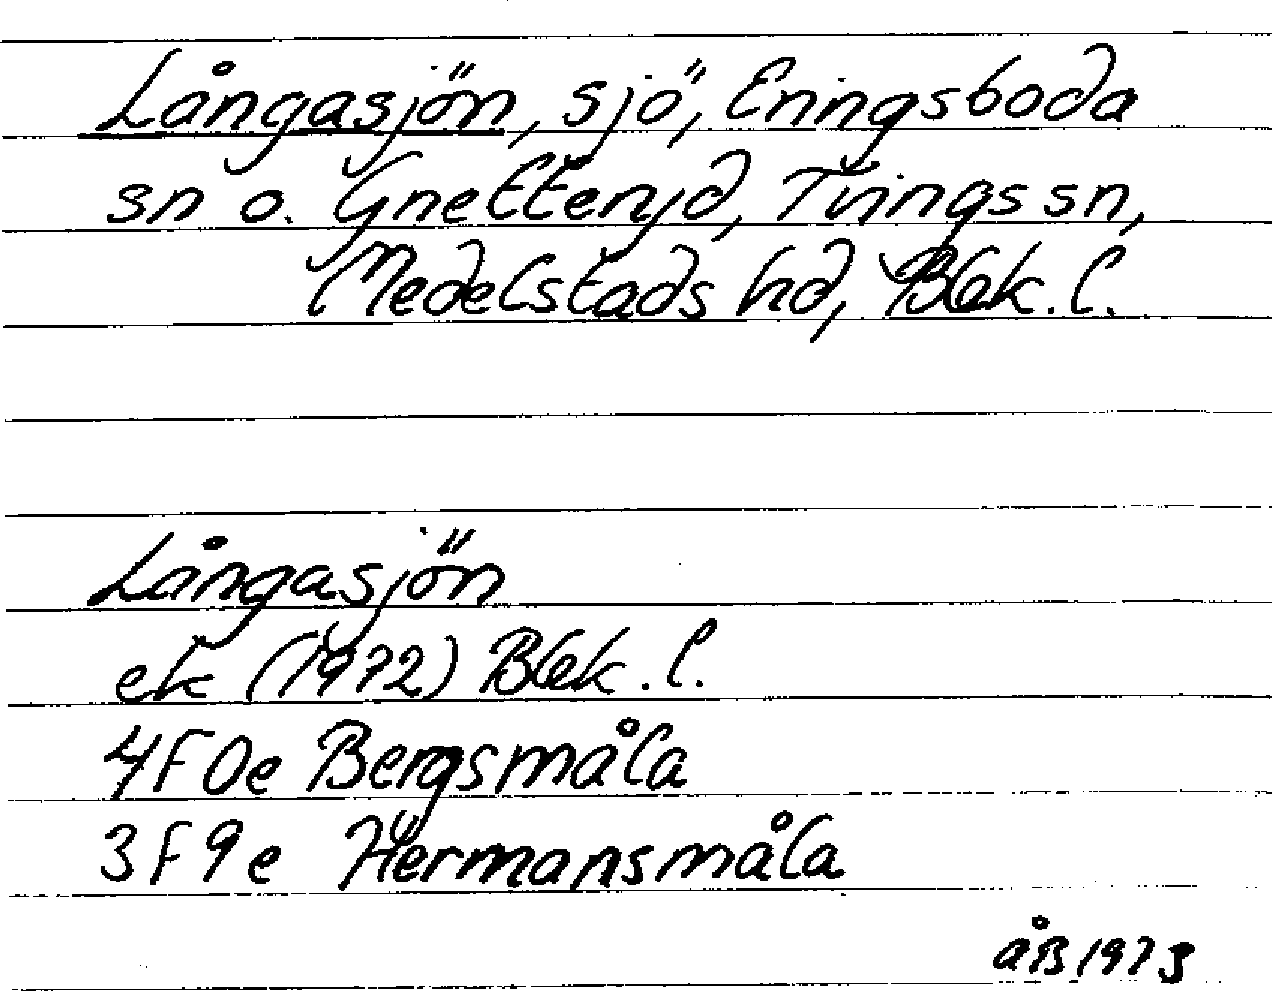 Långasjön, sjö, Eringsboda
sn o. Gnetteryd, Tvings sn,
Medelstads hd, Blek. l.
Långasjön
ek (1972) Blek. l.
4F 0e Bergsmåla
3F 9e Hermansmåla
åB 1973